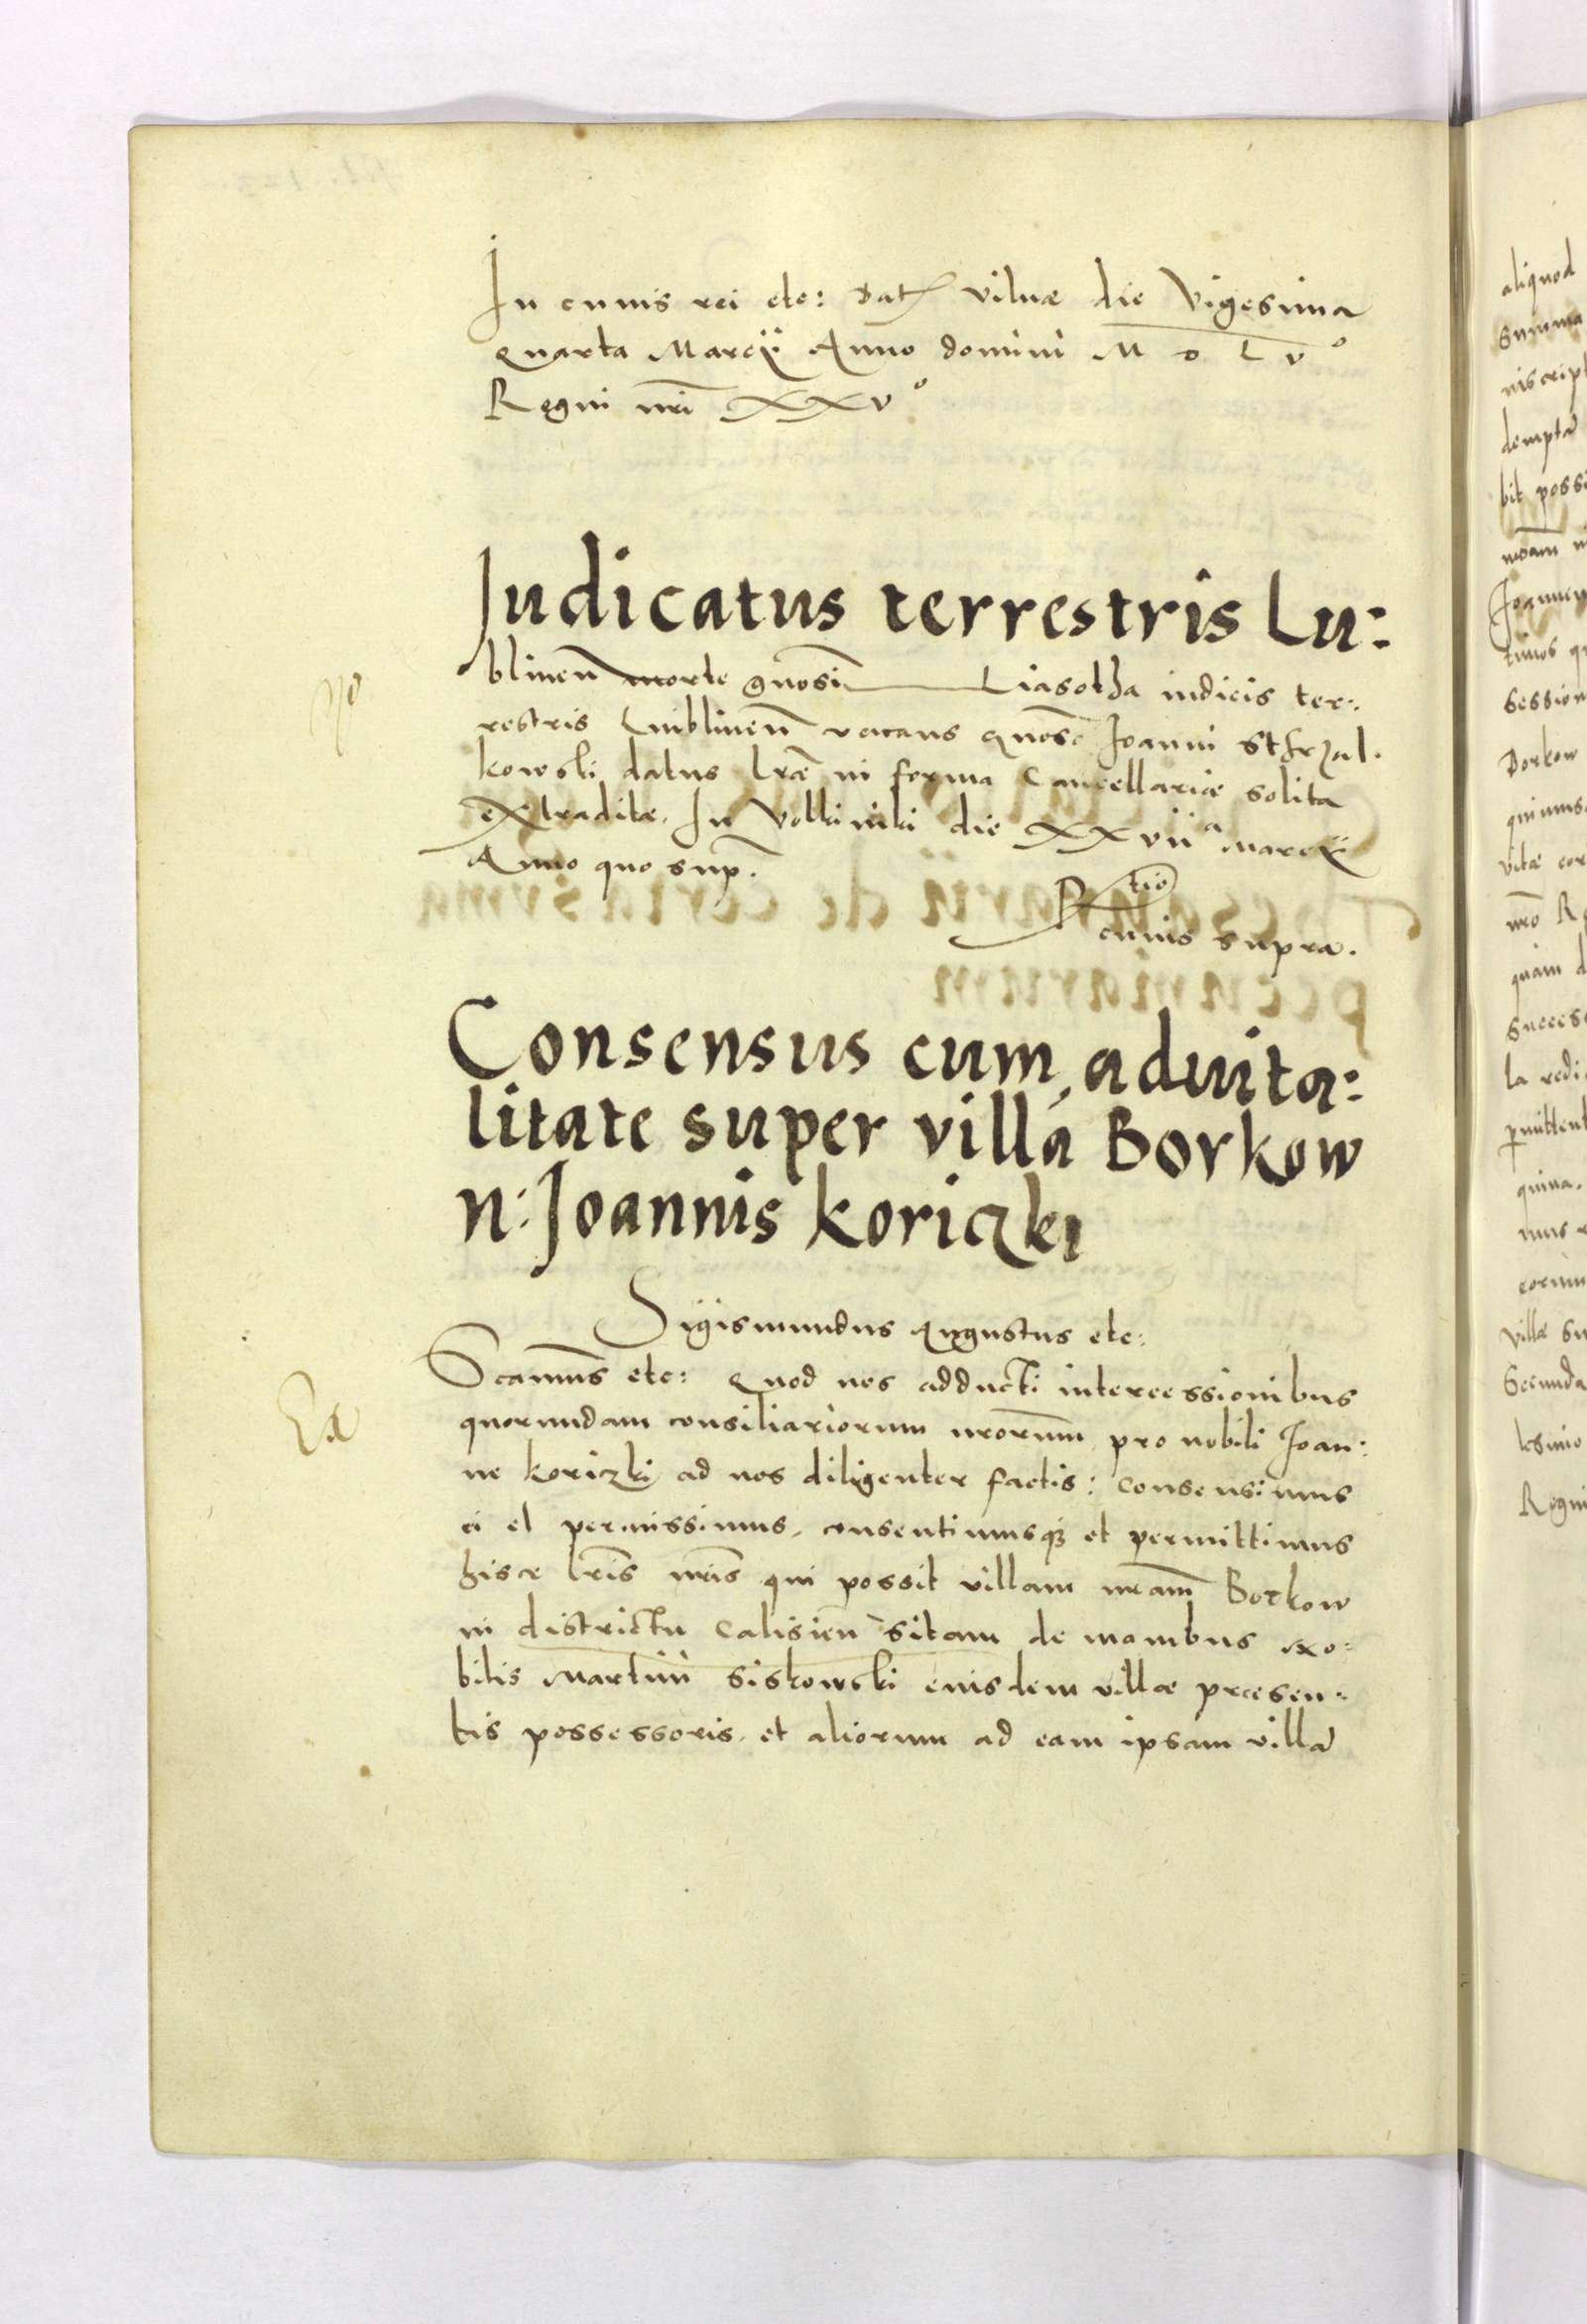 In cuius rei etc: Dat Vilnæ die Vigesima
quarta Marcÿ Anno domini M D L v°
Regni nri XXv°
Judicatus terrestris Lu:
blinen morte gnosi Liasotha iudicis ter:
restris Lublinen vacans gnoso Joanni
kowski datus lræ in forma Cancellariæ solita
extraditæ. In Volkiniki die XXvii a Marcÿ
Anno quo sup.
Rtio
cuius supra.
Consensus cum aduita:
litate super villā Borkow
n: Joannis koriczki
Sigismundus Augustus etc:
Scamus etc: Quod nos adducti intercessionibus
quorundam consiliariorum nrorum pro nobili Joan:
ne koriczki ad nos diligenter factis: consensimus
ei et permissimus, consentimusq3 et permittimus
hisce lris nris qui possit villam nram Borkow
in districtu Calisien sitam de manibus No:
bilis Martini Siskowski eiusdem villæ præsen:
tis possessoris, et aliorum ad eam ipsam villā
aliquod
summa
demptā
bit possi
Joannem
timos
session
Borkow
vitæ
nro
quam
success
la
permittent
quina.
villæ
Secunda
Regni